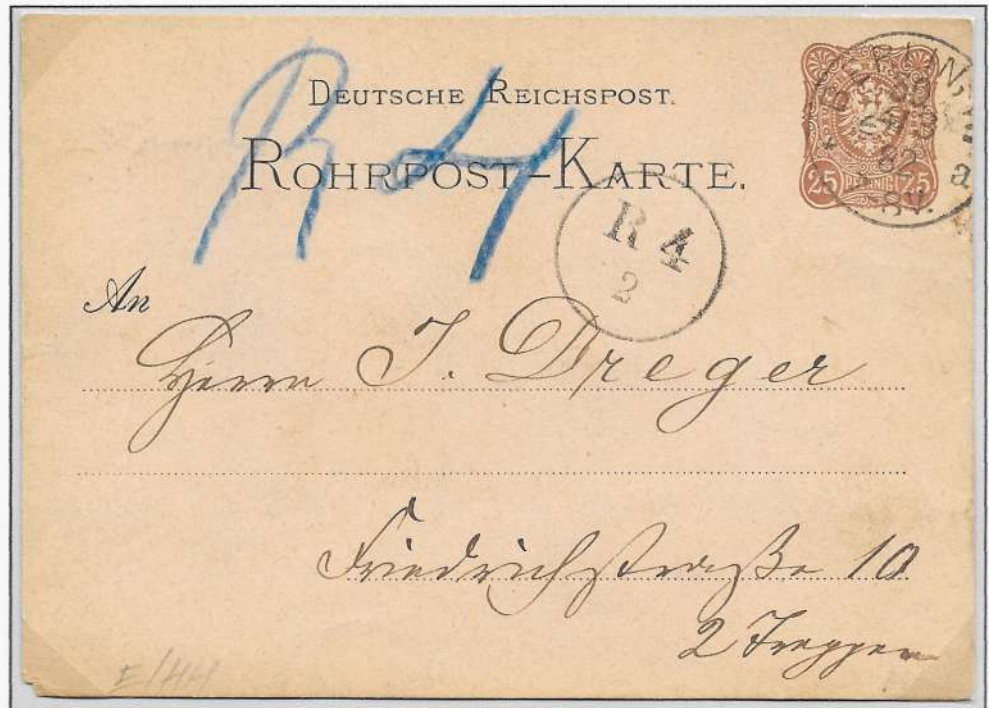 DEUTSCHE REICHSPOST.
ROHRPOST-KARTE.
R 4
25 PFENNIG 25
BERLIN, W.
82
8V.
a
R 4
2
An
Herrn J. Dreger
Friedrichstraße 10
2 Treppen
E/HH